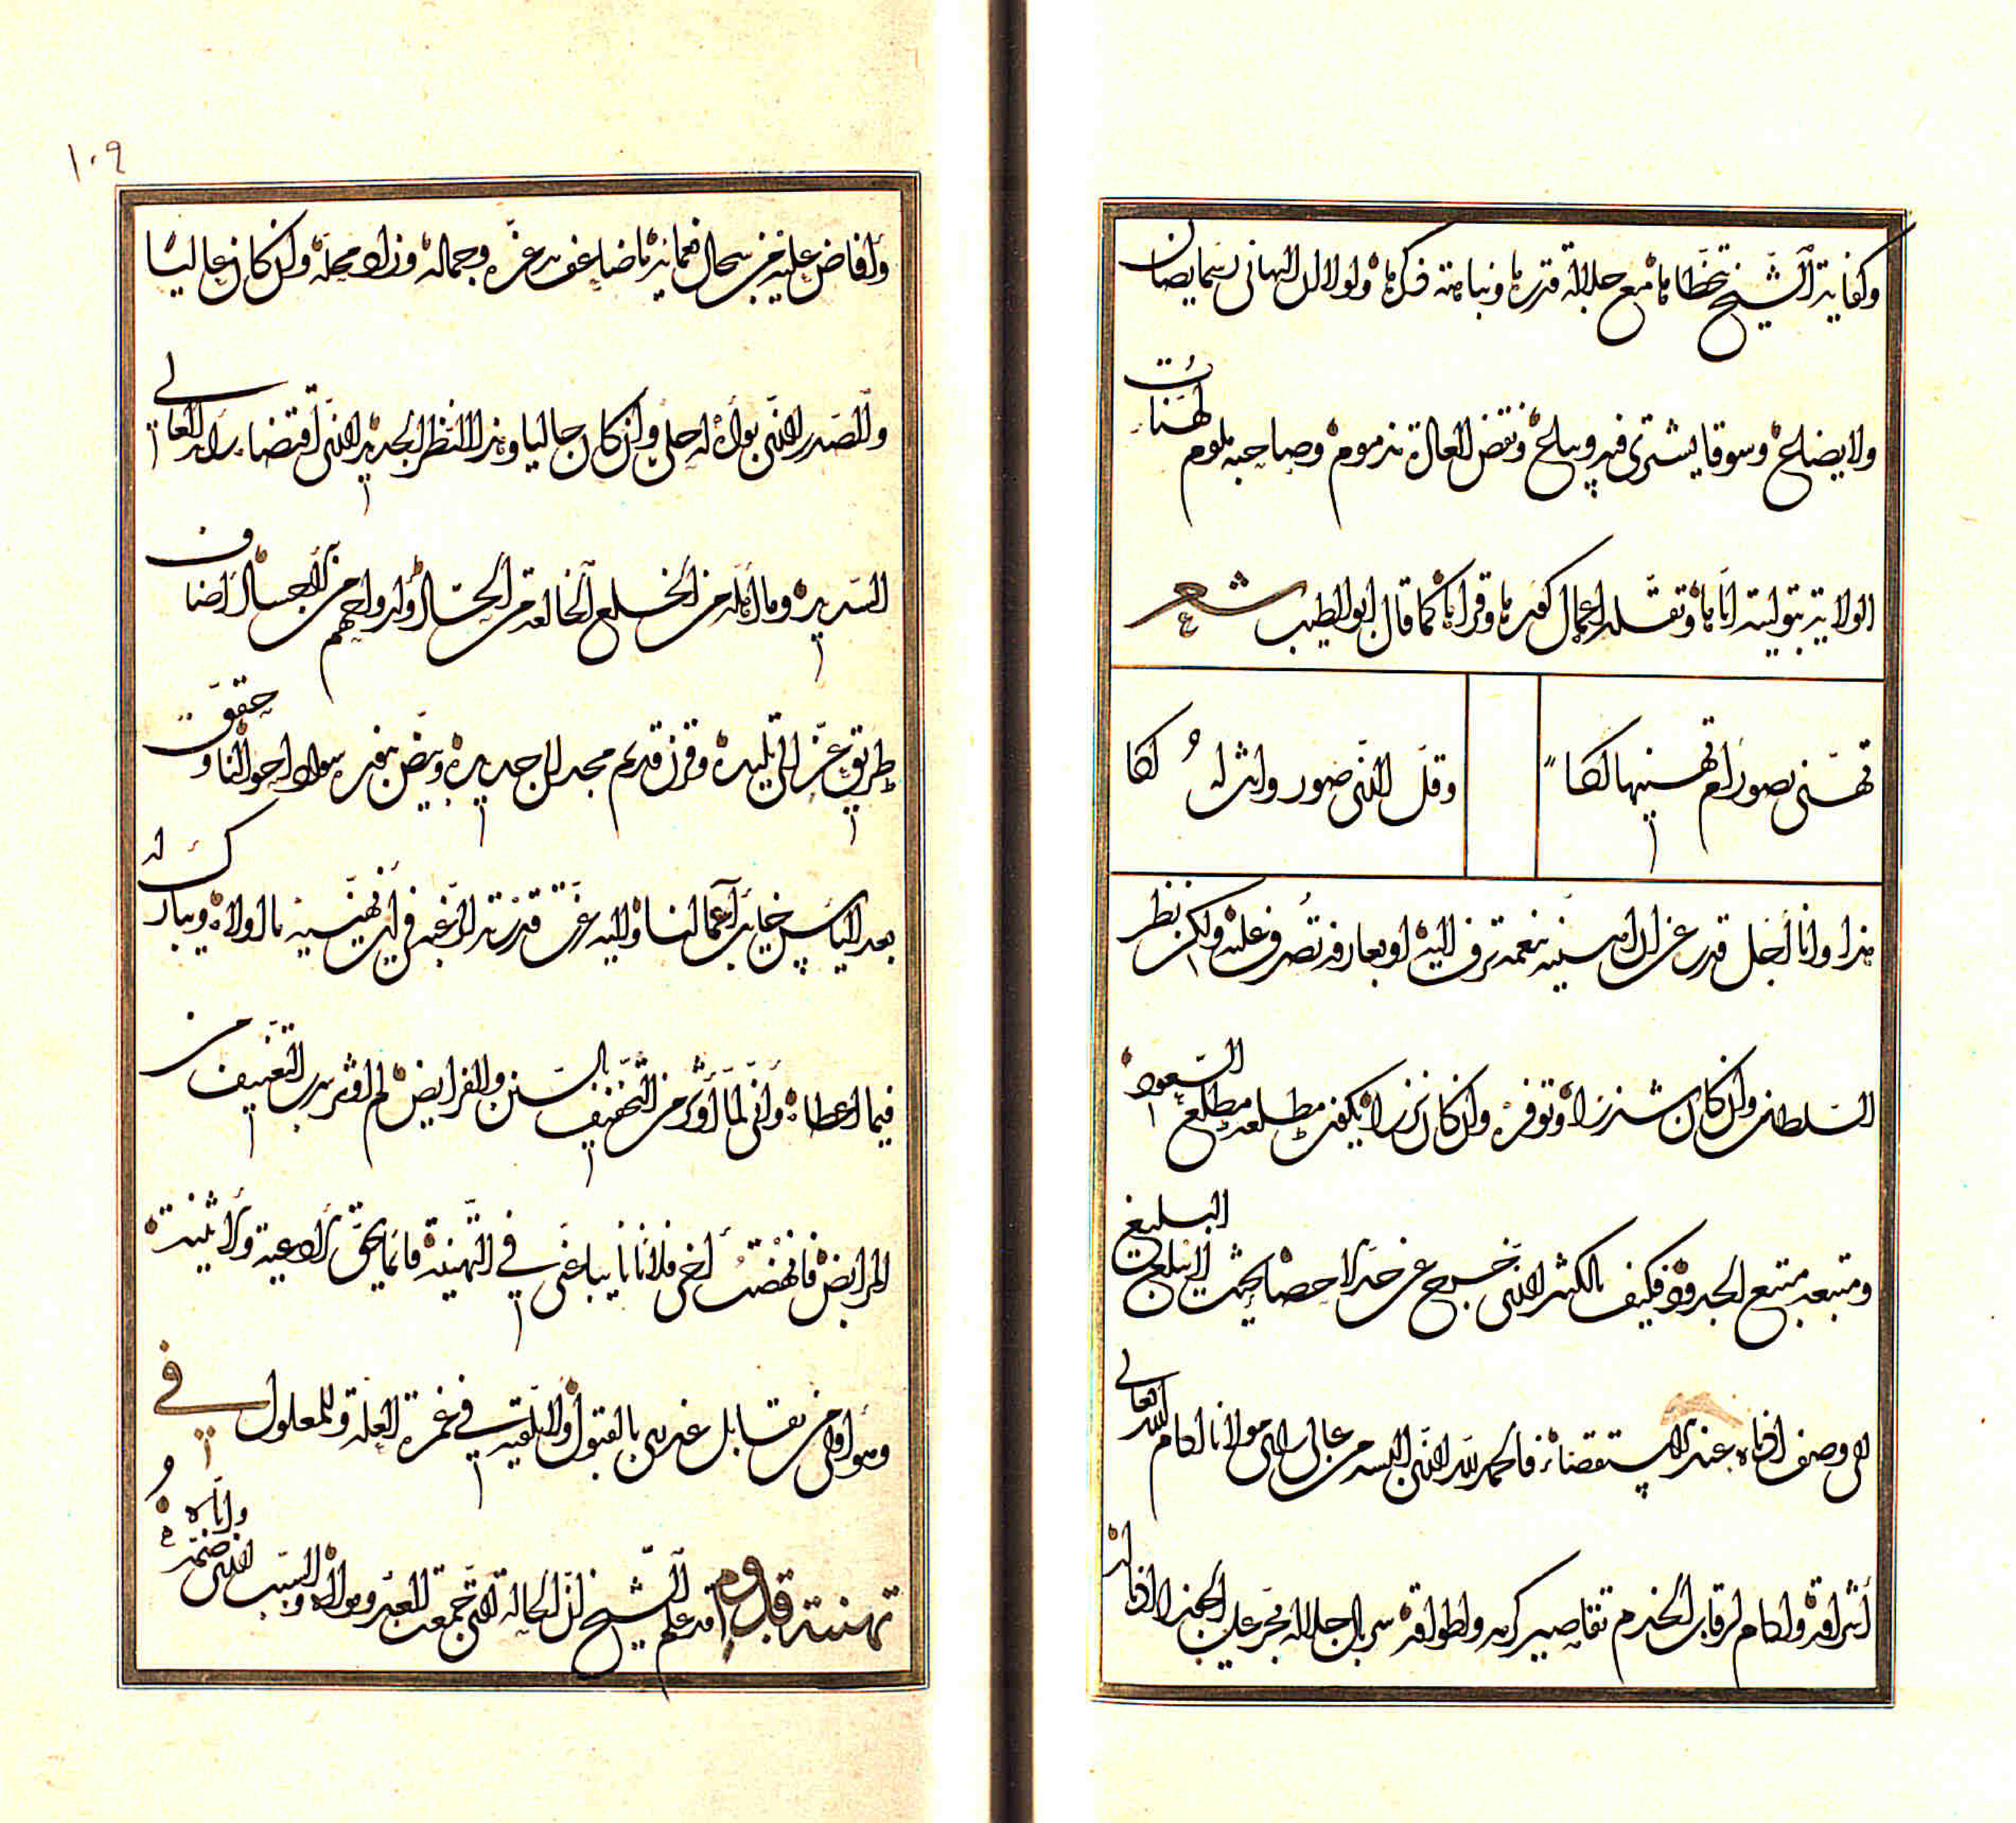 وكفاية الشيخ تتخطاها مع جلالة قدرها ونباهة ذكرها ولولا ان التهاني رسما يصان
ولا يضاع وسوقا يشترى فيه ويباع ونقض العادة مذموم وصاحبه ملوم لهنات
الولاية بتوليته اياها وتقلد اعمال كفيه وقراها كما قال ابو الطيب شعر
تهنى بصور ام نهنيها لكا
وقل الذى صور وانت له لكا
هذا وانا اجل قدره عن ان اهنيه بنعمة تزف اليه او بعارفة تصرف عليه ولكن نظر
السلطان وان كان شزرا وتوفره وان كان نزرا يكفي مطلعه مطلع السعود
ومنبعه منبع الجد فكيف بالكثير الذى خرج عن حد الاحصاء بحيث البليغ
في وصف ادناه عند الاستقصاء فالحمد لله الذى البسه من عالي راى مولانا ادام الله تعالى
اشراقه وادام لرقاب الخدم تقاصير كرمه واطواقه سربال جلالة مجر على المجد اذياله
وافاض عليه من سجال نعمائه ما ضاعف به عزه وجماله وزاد محله وان كان عاليا
والصدر الذى بواه له حلى وان كان حاليا وهذا النظر الجديد الذى اقتضاه رايه العالي
السديد وما والاه من الخلع الخالعة من الحساد ارواحهم من الاجساد اضاف
طريق عز الى تليده وقرن قديم مجد الى جديده وبيض بنوره سواد احوالنا وحقق
بعد الياس خايب آمالنا والى الله عزت قدرته الرغبة في ان يهنيه ما اولاه ويبارك له
فيما اعطاه وانى لما اوثره من التخفيف بالسنن والفرايض لم اوثر به التعنيف من
المرايض فانهضت اخي فلانا نايبا عنى في التهنية فانما يحق الادعية والاثنية
وهو اولى من يقابل عذرى بالقبول ولا يلقيه في غمرة العلة والمعلول في
تهنئة قدوم قد علم الشيخ ان الحالة التى جمعت العبد ومولاه والسبب الذى ضمه واياه
١٠٩